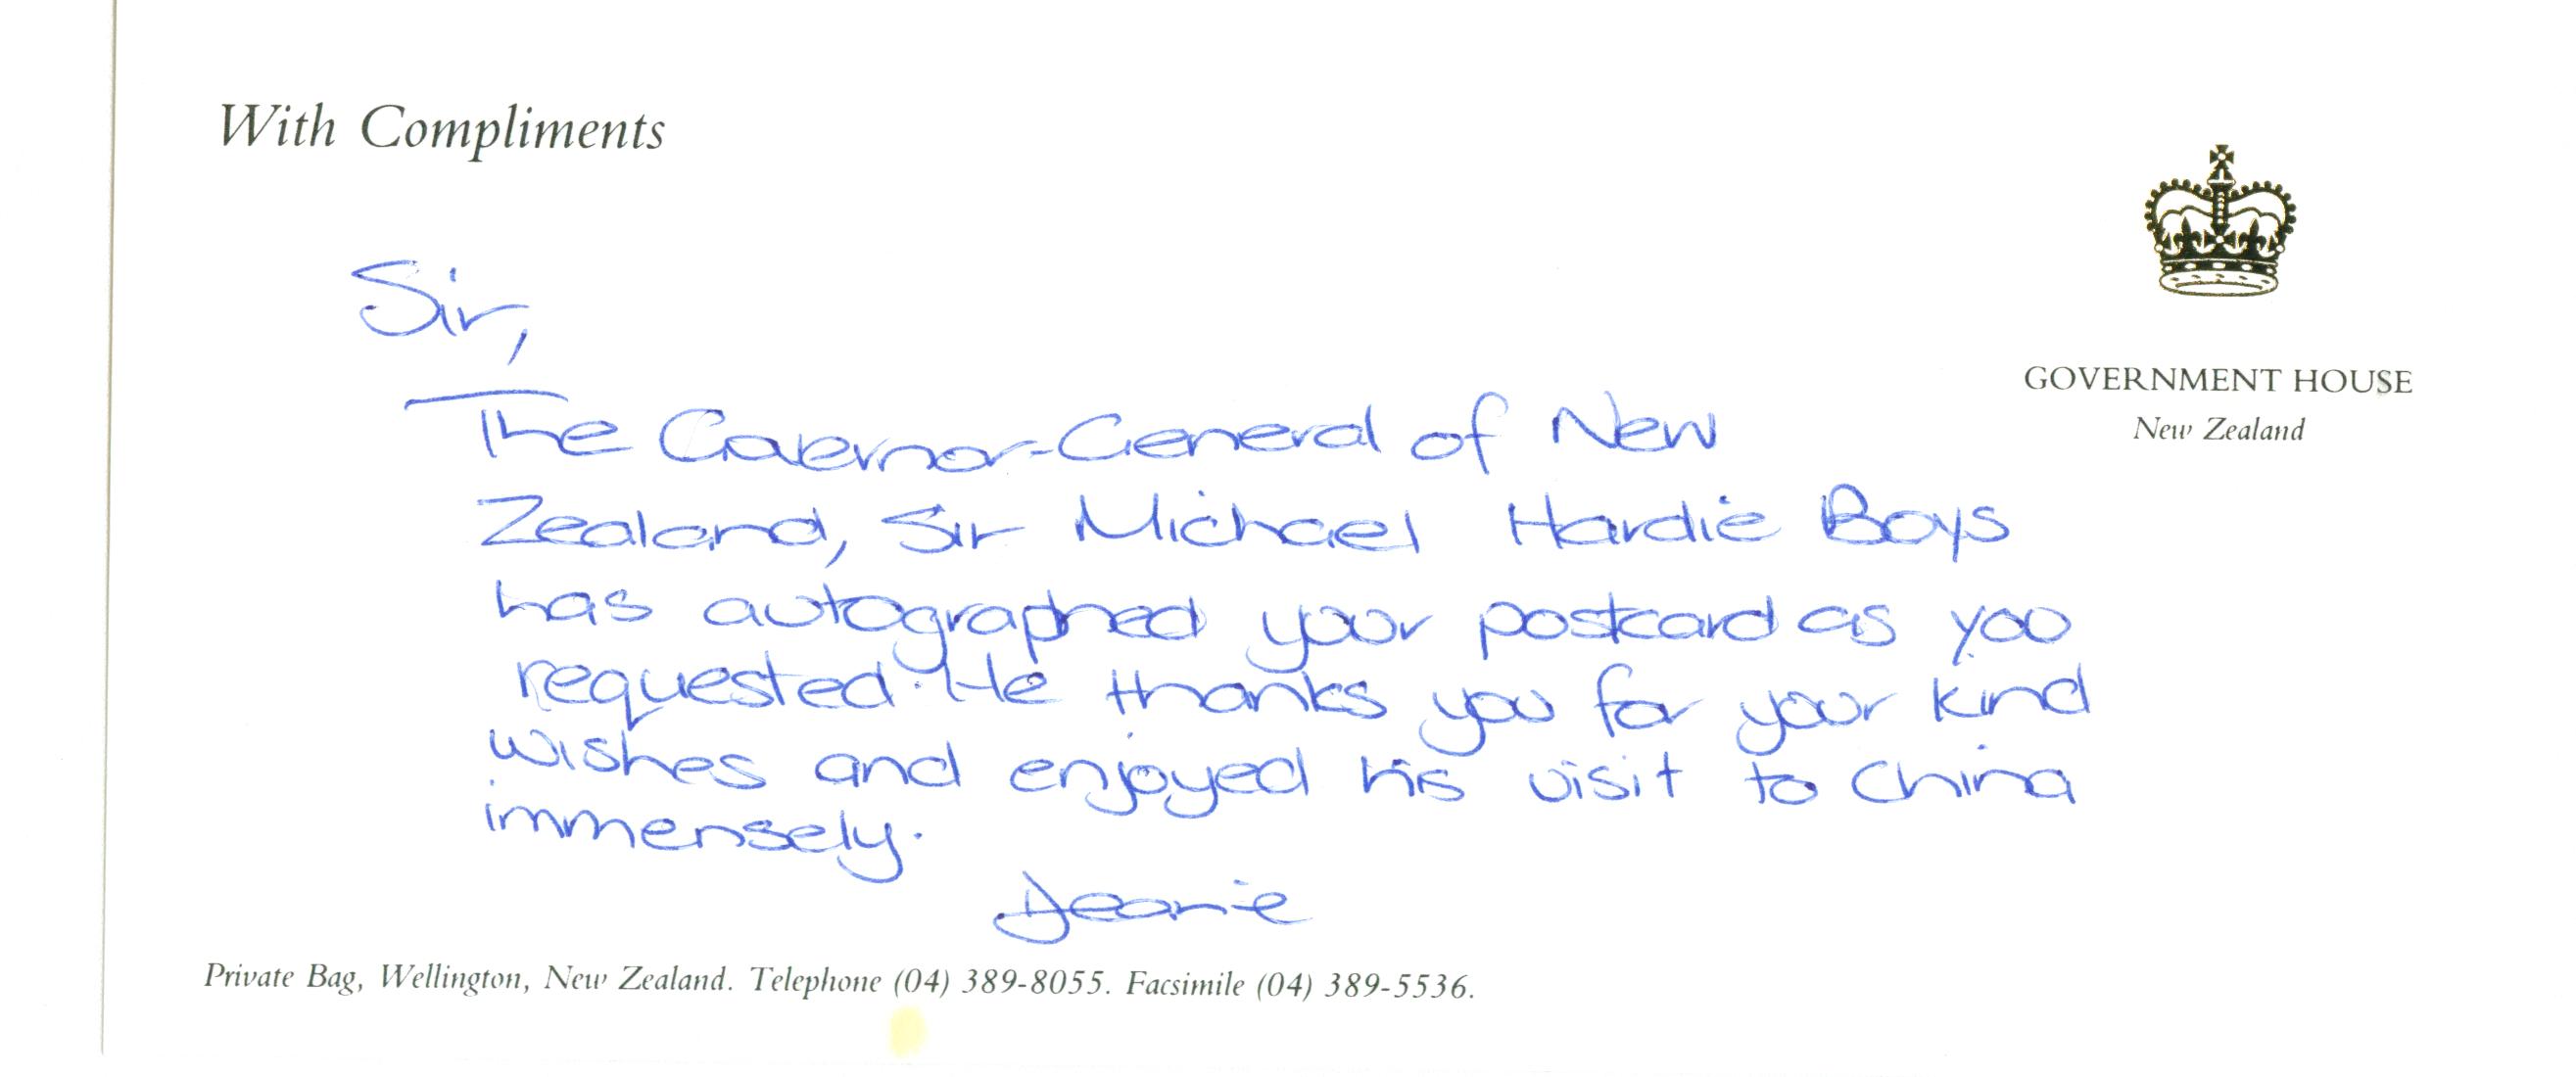 With Compliments
GOVERNMENT HOUSE
New Zealand
Sir,
The Governor-General of New
Zealand, Sir Michael Hardie Boys
has autographed your postcard as you
requested. He thanks you for your kind
wishes and enjoyed his visit to China
immensely.
Private Bag, Wellington, New Zealand. Telephone (04) 389-8055. Facsimile (04) 389-5536.